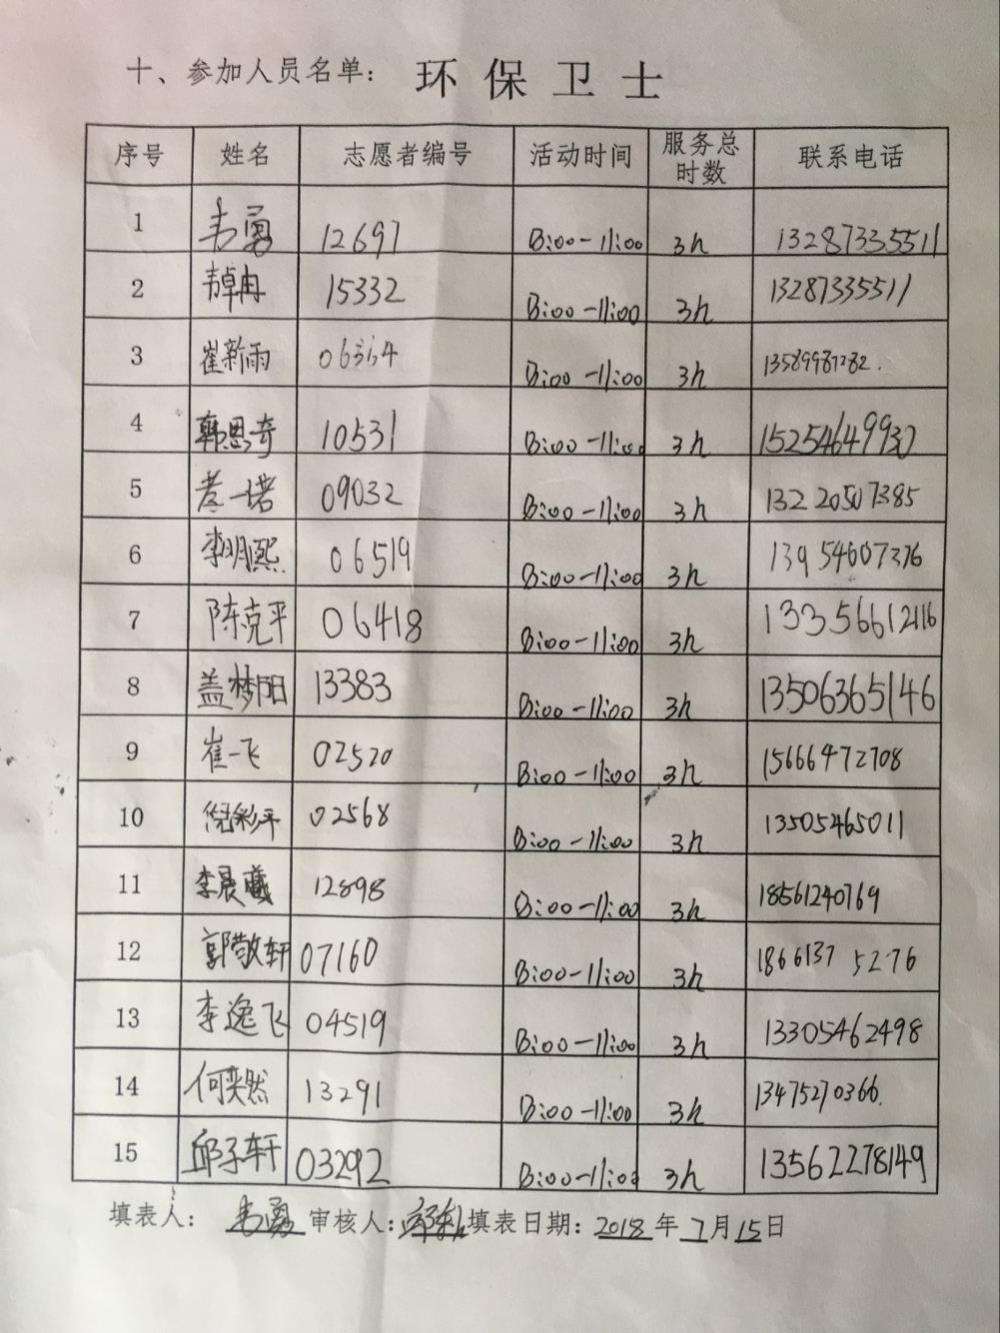 十、参加人员名单： 环保卫士
序号 姓名 志愿者编号 活动时间 服务总时数 联系电话
1 韦勇 12697 8:00-11:00 3h 13287335511
2 韦卓冉 15332 8:00-11:00 3h 13287335511
3 崔新雨 06364 8:00-11:00 3h
4 韩思奇 10531 8:00-11:00 3h 15254649930
5 一诺 09032 8:00-11:00 3h 13220507385
6 李明熙 06519 8:00-11:00 3h 13954607376
7 陈克平 06418 8:00-11:00 3h 13356612116
8 盖梦阳 13383 8:00-11:00 3h 13506365146
9 崔一飞 02520 8:00-11:00 3h 15666472708
10 倪彩平 02568 8:00-11:00 3h 13505465011
11 李晨曦 12898 8:00-11:00 3h 18561240769
12 郭敬轩 07160 8:00-11:00 3h 18661375276
13 李逸飞 04519 8:00-11:00 3h 13305462498
14 何奕然 13291 8:00-11:00 3h 13475270366.
15 邱子轩 03292 8:00-11:00 3h 13562278149
填表人： 韦勇 审核人： 填表日期：2018年7月15日